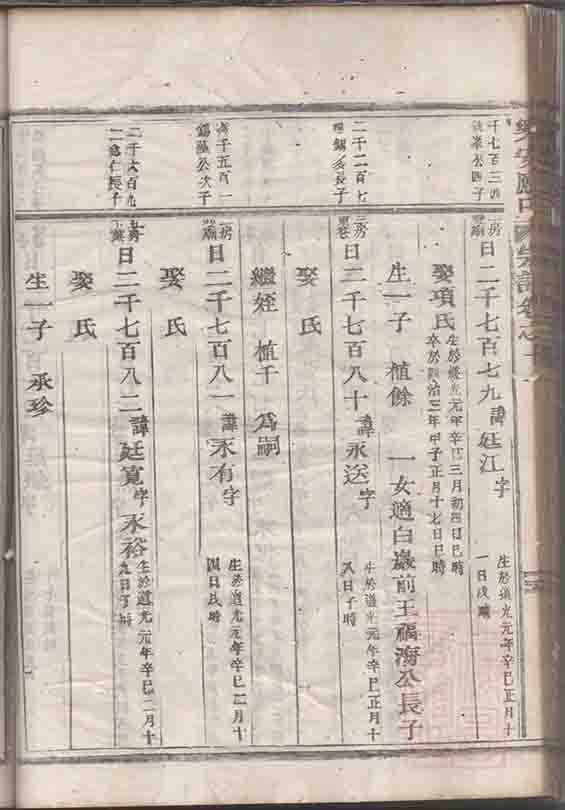 千七百三
公四子
房
日二千七百七九諱廷江字
生於道光元年辛巳正月十
一日戌時
娶項氏
生於道光元年辛巳三月初四日巳時
卒於同治三年甲子正月十七日巳時
生一子 植餘 一女適白巖前王福濤公長子
二千二百七
公長子
房
日二千七百八十諱永送字
生於道光元年辛巳正月十
八日子時
娶氏
繼姪植千為嗣
千五百一
公次子
房
日二千七百八一諱永有字
生於道光元年辛巳二月十
四日辰時
娶氏
二千六百九
仁長子
日二千七百八二諱廷寬字永裕
生於道光元年辛巳二月十
九日丁時
娶氏
生一子 承珍